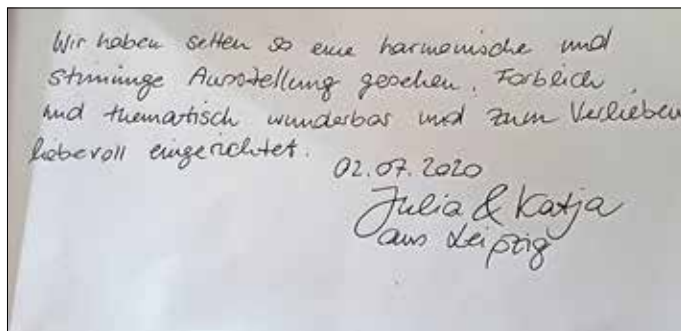 Wir haben selten so eine harmonische und
stimmige Ausstellung gesehen. Farblich
und thematisch wunderbar und zum Verlieben
liebevoll eingerichtet.
02.07.2020
Julia & Katja
aus Leipzig